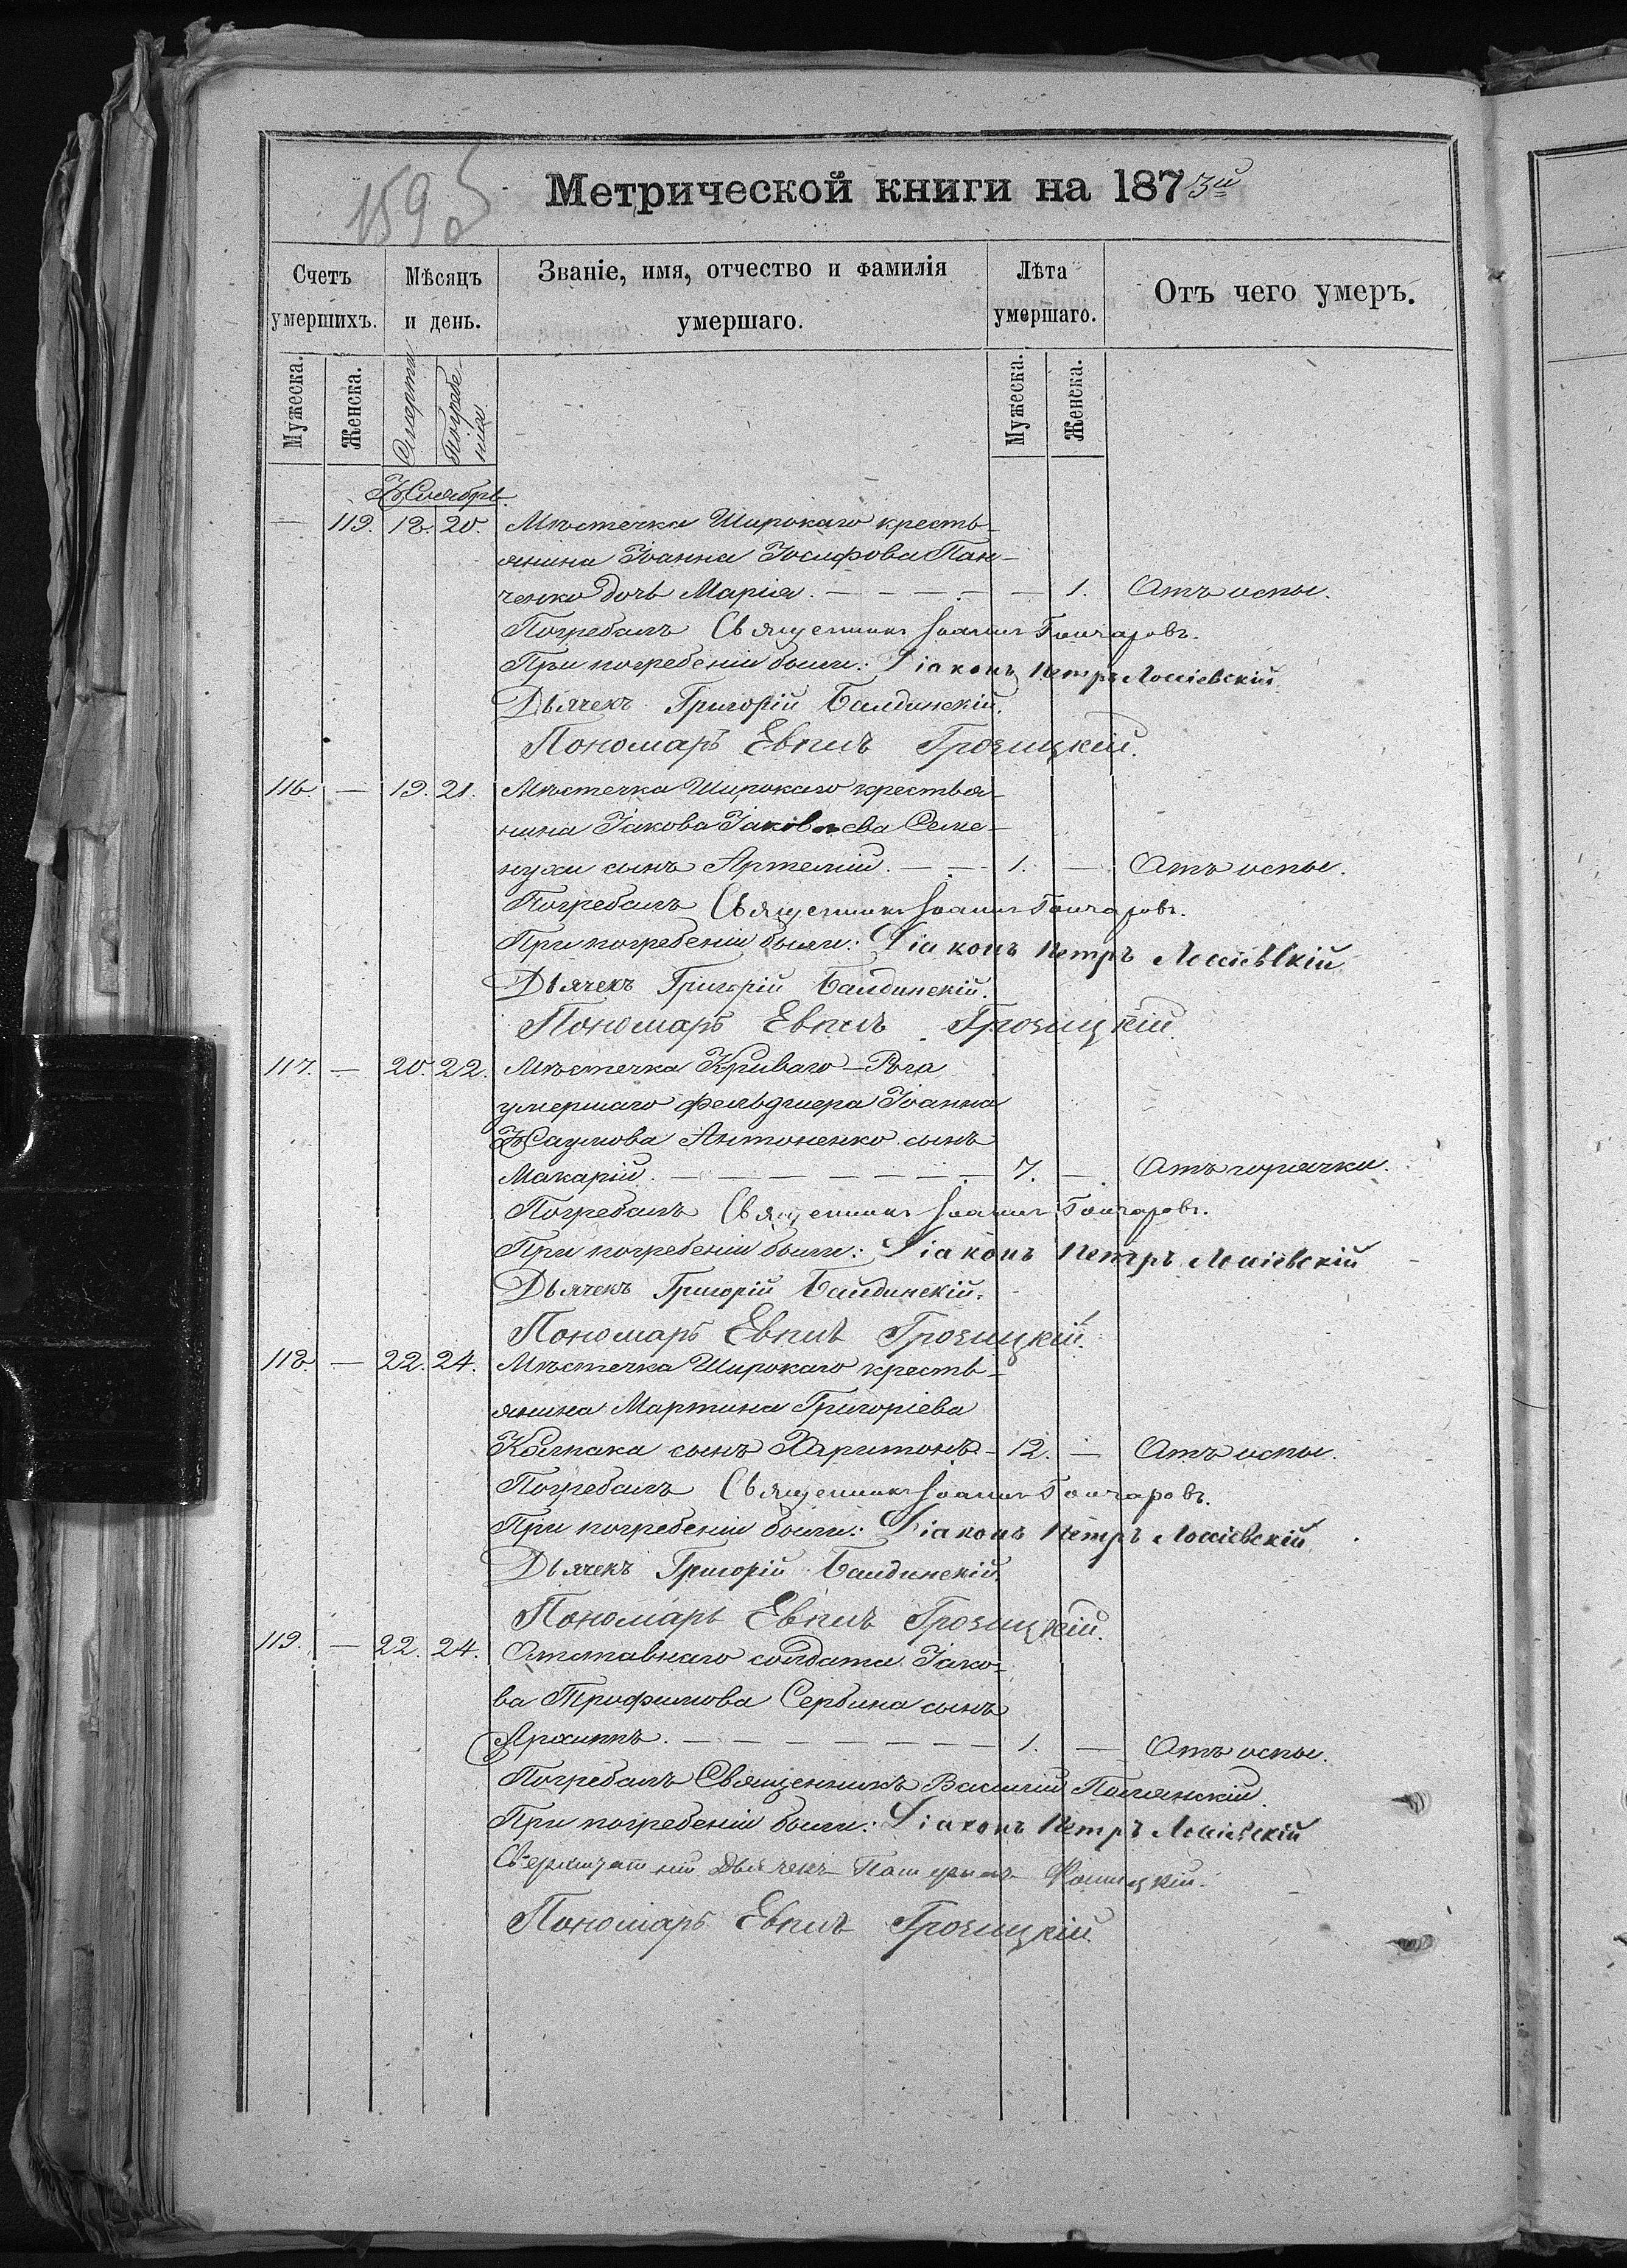 1595
Метрической книги на 1873й
Счетъ умершихъ.
Мѣсяцъ и день.
Званіе, имя, отчество и фамилія умершаго.
Лѣта умершаго.
Отъ чего умеръ.
Мужеска. Женска. Смерти Погребенія Мужеска. Женска.
Ноябрь
— 119. 18. 20. Мѣстечка Широкаго кресть-
янина Іоанна Іосифова Пан-
ченко дочь Марія. — 1. Отъ оспы.
Погребалъ Священникъ Іоаннъ Гончаровъ.
При погребеніи были: Діаконъ Петръ
Дьячекъ Григорій Балдинскій.
Пономарь Евпилъ Грозицкій.
116. — 19. 21. Мѣстечка Широкаго крестья-
нина Іакова Іаковлева Семе-
нухи сынъ Артемій. — 1. — Отъ оспы.
Погребалъ Священникъ Іоаннъ Гончаровъ.
При погребеніи были: Діаконъ Петръ
Дьячекъ Григорій Балдинскій.
Пономарь Евпилъ Грозицкій.
117. — 20. 22. Мѣстечка Криваго-Рога
умершаго фельдшера Іоанна
Наумова Антоненко сынъ
Макарій. — 7. — Отъ горячки.
Погребалъ Священникъ Іоаннъ Гончаровъ.
При погребеніи были: Діаконъ Петръ
Дьячекъ Григорій Балдинскій.
Пономарь Евпилъ Грозицкій.
118 — 22. 24. Мѣстечка Широкаго кресть-
янина Мартина Григоріева
Колпака сынъ Харитонъ — 12. — Отъ оспы.
Погребалъ Священникъ Іоаннъ Гончаровъ.
При погребеніи были: Діаконъ Петръ
Дьячекъ Григорій Балдинскій.
Пономарь Евпилъ Грозицкій.
119. — 22. 24. Отставнаго солдата Іако-
ва Трофимова Сербина сынъ
Архиппъ. — 1. — Отъ оспы.
Погребалъ Священникъ Василій Полянскій.
При погребеніи были: Діаконъ Петръ
Сверхштатный Дьячекъ
Пономарь Евпилъ Грозицкій.